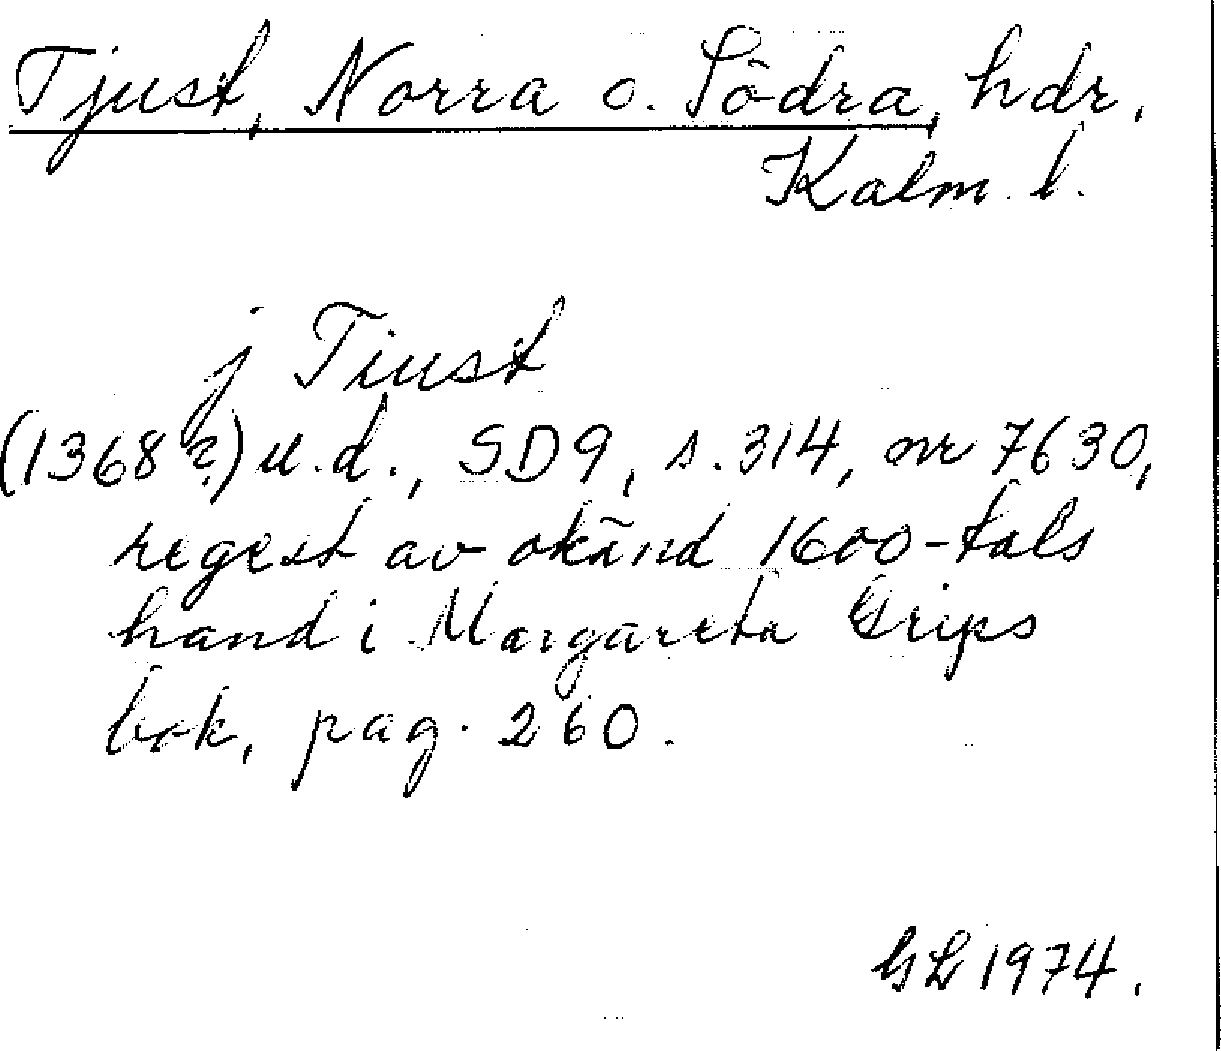 Tjust, Norra o. Södra, hdr.
Kalm. l.
j Tiust
(1368?) u.d., SD9, s. 314, nr 7630,
regest av okänd 1600-tals
hand i Margareta Grips
bok, pag. 260.
GL 1974.